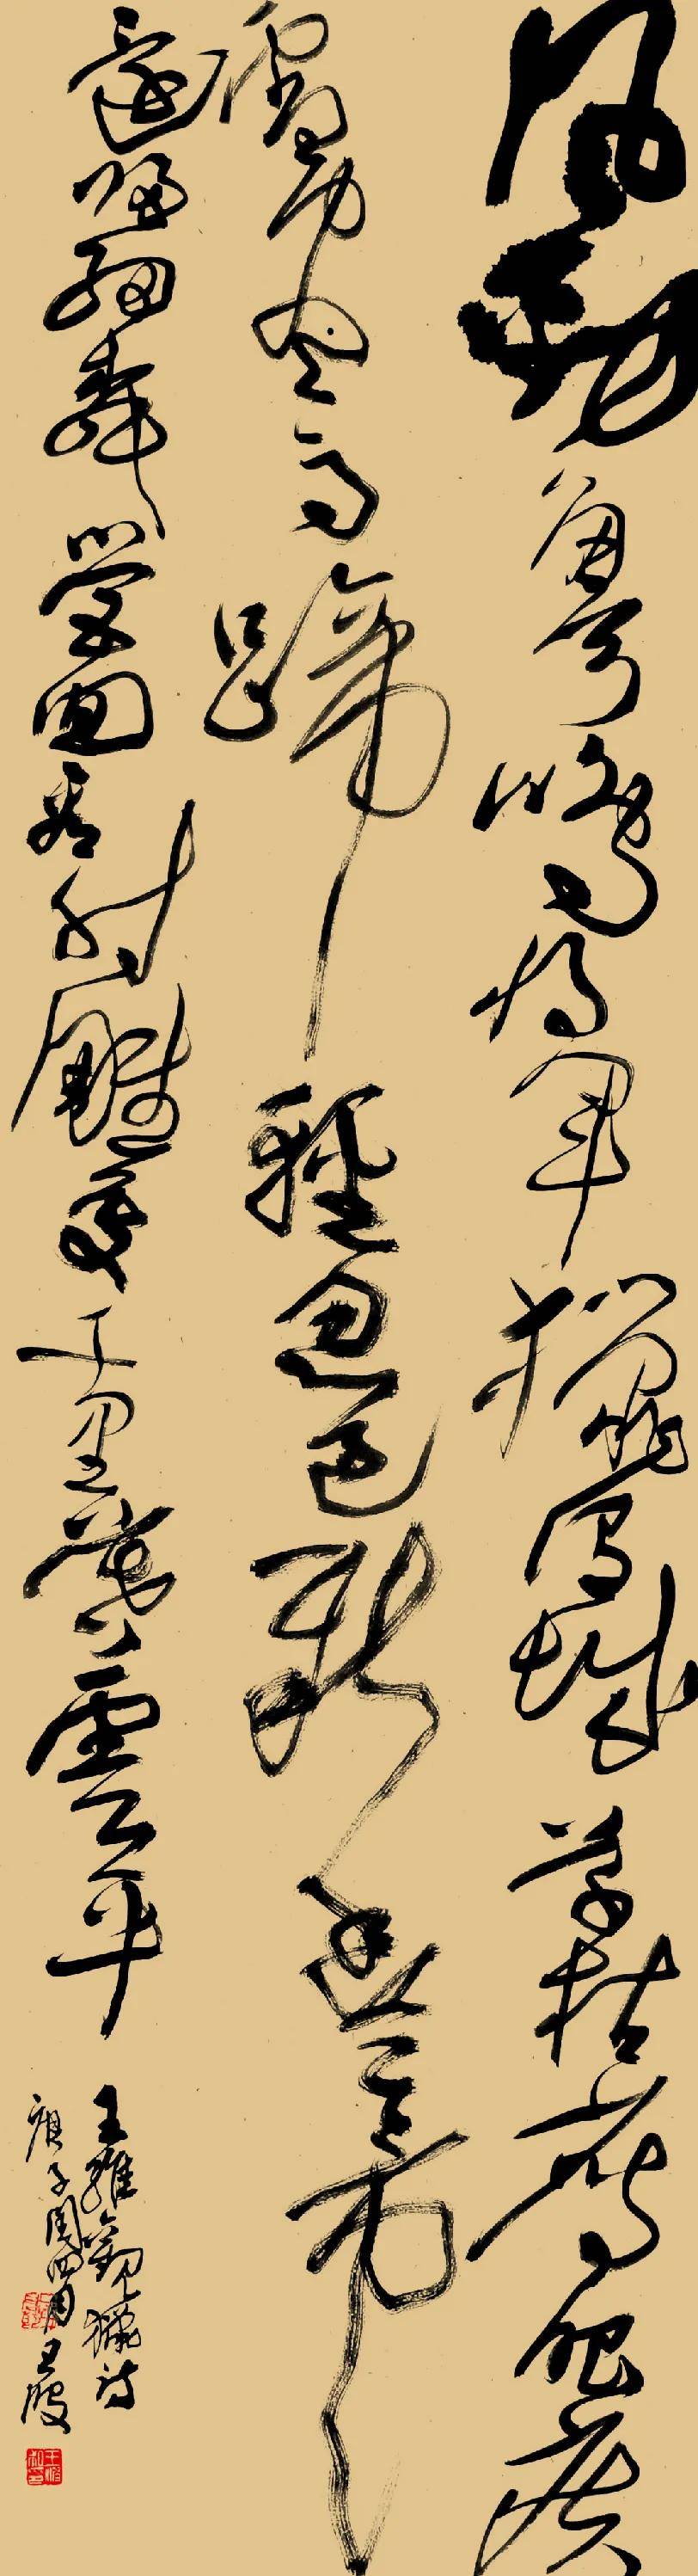 風勁角弓鳴將軍獵渭城草枯鷹眼疾
雪盡馬蹄輕忽過新豐市
還歸細柳營回看射雕處千里暮雲平
王維觀獵詩
庚子閏四月王